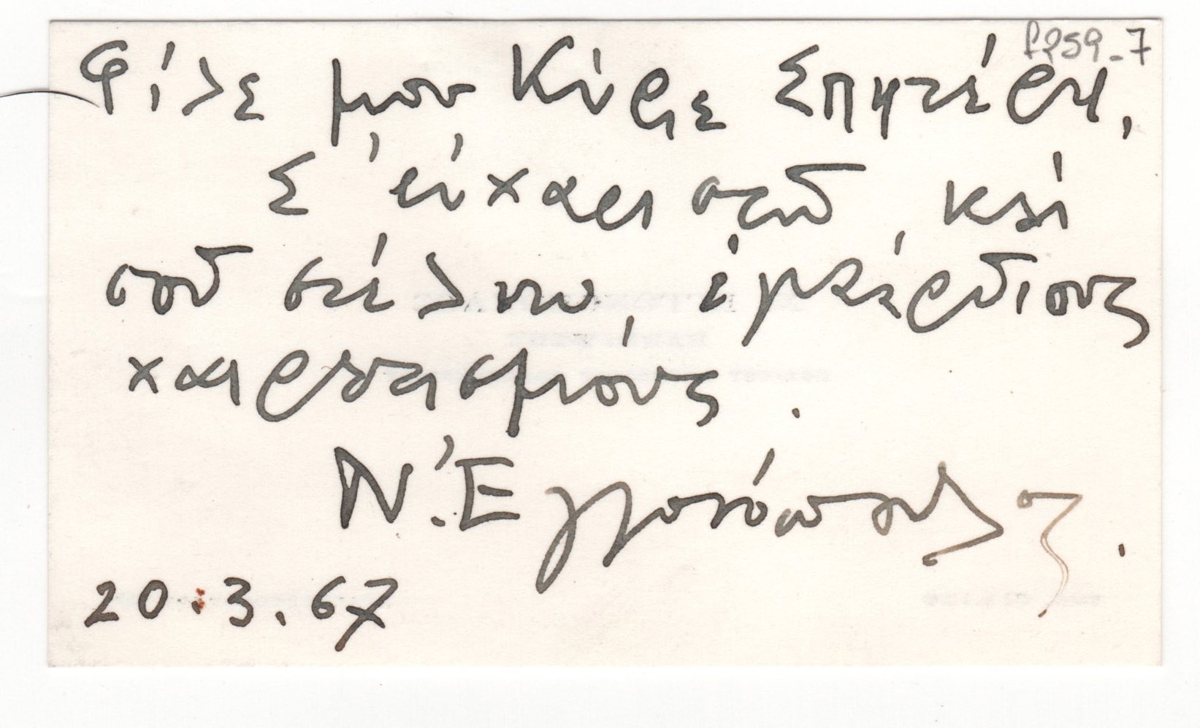 f259-7
Φίλε μου Κύριε Σπητέρη,
Σ' εὐχαριστῶ, καὶ
σοῦ στέλνω, ἐγκάρδιους
χαιρετισμούς.
Ν. Ἐγγονόπουλος.
20.3.67